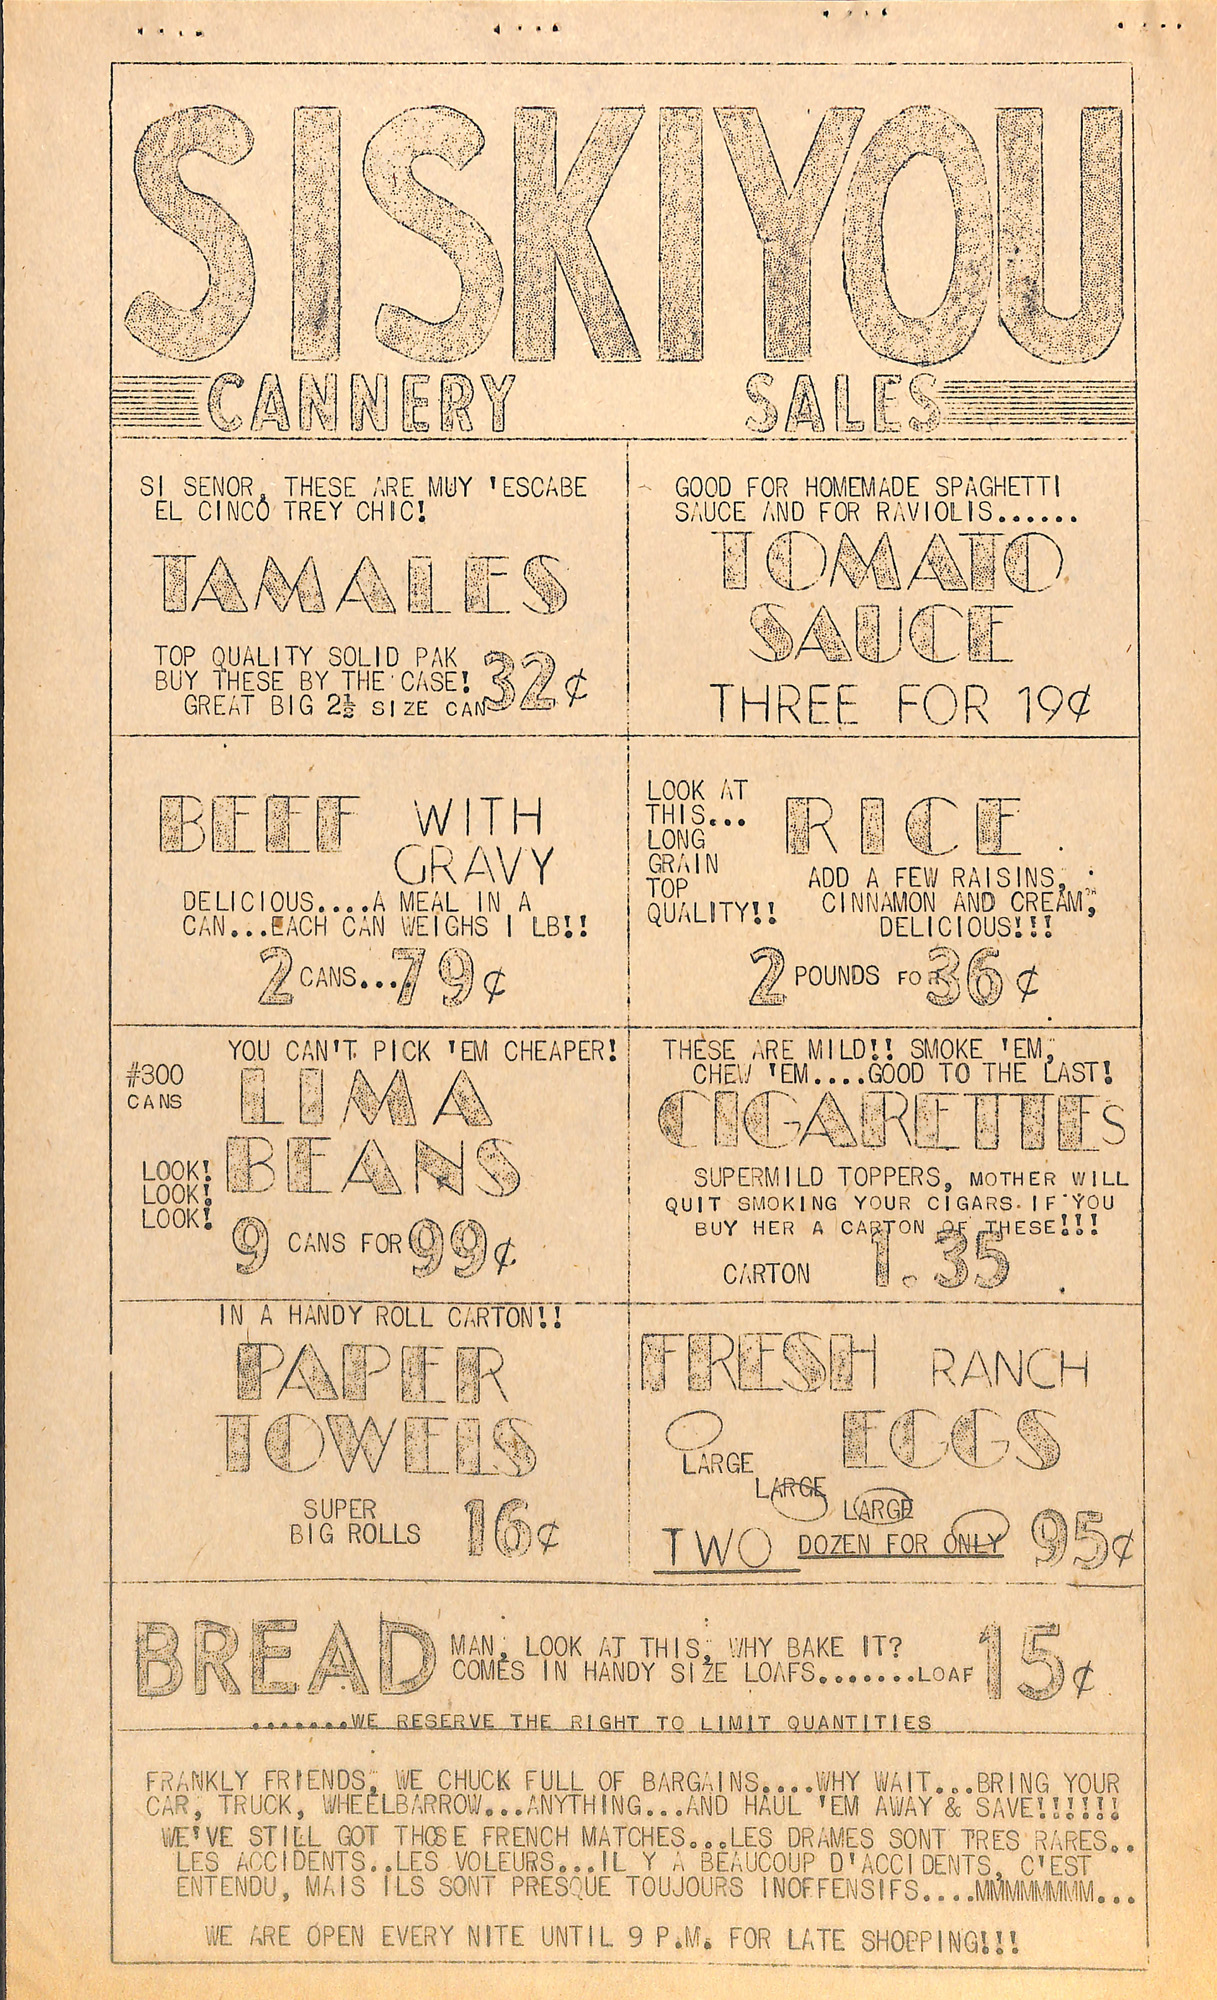 SISKIYOU
CANNERY SALES
SI SENOR, THESE ARE MUY 'ESCABE
EL CINCO TREY CHIC!
TAMALES
TOP QUALITY SOLID PAK
BUY THESE BY THE CASE!
GREAT BIG 2½ SIZE CAN 32¢
GOOD FOR HOMEMADE SPAGHETTI
SAUCE AND FOR RAVIOLIS......
TOMATO
SAUCE
THREE FOR 19¢
BEEF WITH
GRAVY
DELICIOUS....A MEAL IN A
CAN...EACH CAN WEIGHS 1 LB!!
2 CANS...79¢
LOOK AT
THIS...
LONG
GRAIN
TOP
QUALITY!!
RICE
ADD A FEW RAISINS,
CINNAMON AND CREAM,
DELICIOUS!!!
2 POUNDS FOR 36¢
YOU CAN'T PICK 'EM CHEAPER!
#300
CANS
LIMA
BEANS
LOOK!
LOOK!
LOOK!
9 CANS FOR 99¢
THESE ARE MILD!! SMOKE 'EM,
CHEW 'EM....GOOD TO THE LAST!
CIGARETTES
SUPERMILD TOPPERS, MOTHER WILL
QUIT SMOKING YOUR CIGARS IF YOU
BUY HER A CARTON OF THESE!!!
CARTON 1.35
IN A HANDY ROLL CARTON!!
PAPER
TOWELS
SUPER
BIG ROLLS 16¢
FRESH RANCH
EGGS
LARGE
LARGE
LARGE
TWO DOZEN FOR ONLY 95¢
BREAD MAN, LOOK AT THIS, WHY BAKE IT?
COMES IN HANDY SIZE LOAFS.......LOAF 15¢
.......WE RESERVE THE RIGHT TO LIMIT QUANTITIES
FRANKLY FRIENDS, WE CHUCK FULL OF BARGAINS....WHY WAIT...BRING YOUR
CAR, TRUCK, WHEELBARROW...ANYTHING...AND HAUL 'EM AWAY & SAVE!!!!!!
WE'VE STILL GOT THOSE FRENCH MATCHES...LES DRAMES SONT TRES RARES..
LES ACCIDENTS..LES VOLEURS...IL Y A BEAUCOUP D'ACCIDENTS, C'EST
ENTENDU, MAIS ILS SONT PRESQUE TOUJOURS INOFFENSIFS....MMMMMMMM...
WE ARE OPEN EVERY NITE UNTIL 9 P.M. FOR LATE SHOPPING!!!